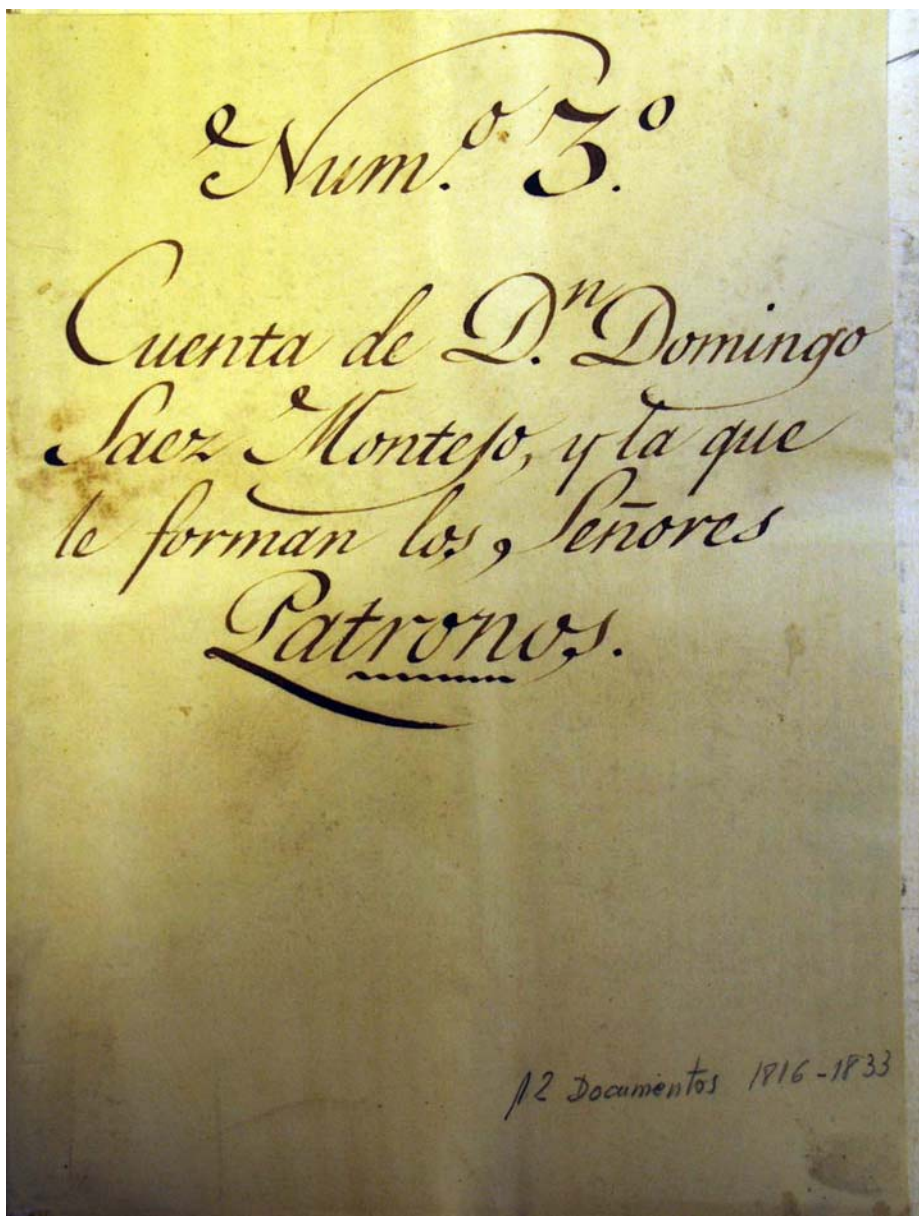 Num.º 3.º
Cuenta de D.ⁿ Domingo
Saez Montejo, y la que
le forman los, Señores
Patronos.
12 Documentos 1816-1833